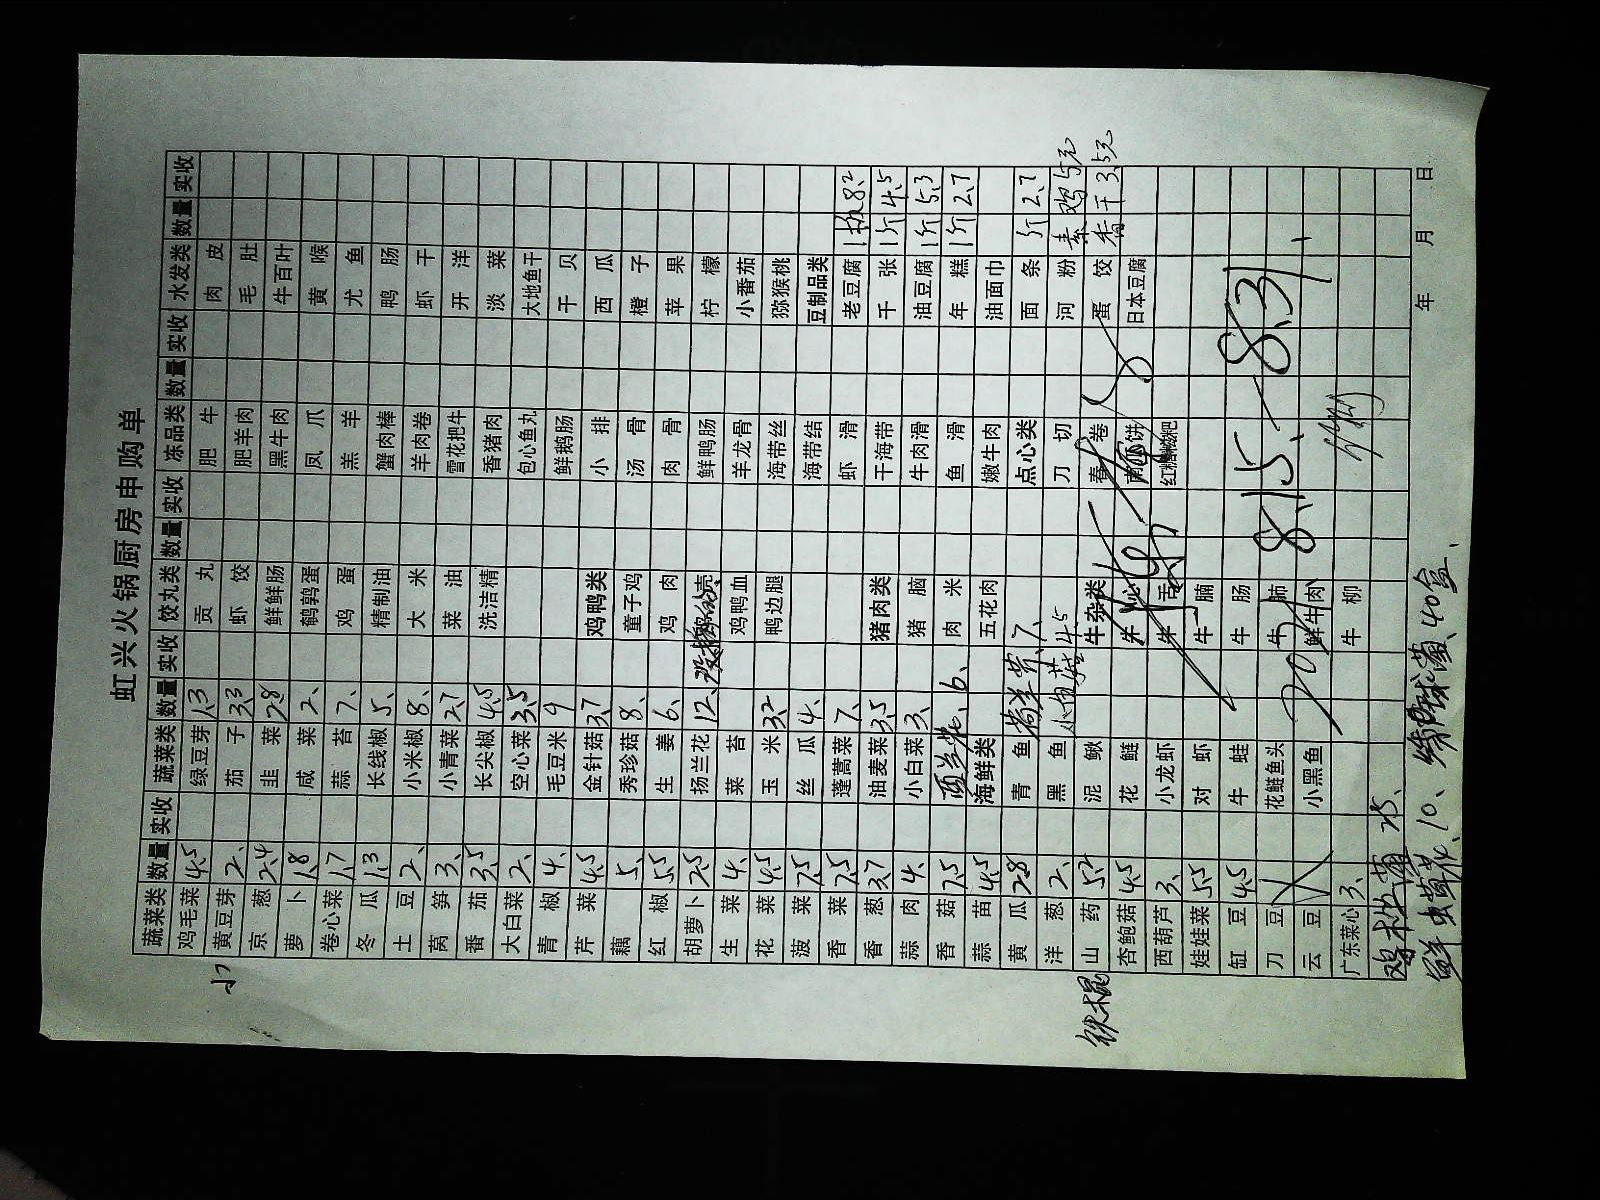 虹兴火锅厨房申购单
蔬菜类 数量 实收 蔬菜类 数量 实收 饺丸类 数量 实收 冻品类 数量 实收 水发类 数量 实收
鸡毛菜 4.5 绿豆芽 1.3 贡丸 肥牛 肉皮
黄豆芽 2、 茄子 3.3 虾饺 肥羊肉 毛肚
京葱 2.4 韭菜 2.8 鲜鲜肠 黑牛肉 牛百叶
萝卜 1.8 咸菜 2、 鹌鹑蛋 凤爪 黄喉
卷心菜 1.7 蒜苔 7、 鸡蛋 羔羊 尤鱼
冬瓜 1.3 长线椒 5、 精制油 蟹肉棒 鸭肠
土豆 2、 小米椒 8、 大米 羊肉卷 虾干
莴笋 3、 小青菜 2.7 菜油 雪花把牛 开洋
番茄 3.5 长尖椒 4.5 洗洁精 香猪肉 淡菜
大白菜 2、 空心菜 3.5 包心鱼丸 大地鱼干
青椒 4、 毛豆米 9 鲜鹅肠 干贝
芹菜 4.5 金针菇 3.7 鸡鸭类 小排 西瓜
藕 5、 秀珍菇 8、 童子鸡 汤骨 橙子
红椒 5.5 生姜 6、 鸡肉 肉骨 苹果
胡萝卜 2.5 扬兰花 12、 鲜鸭肠 柠檬
生菜 4、 菜苔 鸡鸭血 羊龙骨 小番茄
花菜 4.5 玉米 3.2 鸭边腿 海带丝 猕猴桃
菠菜 7.5 丝瓜 4、 海带结 豆制品类
香菜 7.5 蓬蒿菜 7、 虾滑 老豆腐 1板 8.2
香葱 3.7 油麦菜 3.5 猪肉类 干海带 千张 1斤 4.5
蒜肉 4、 小白菜 3、 猪脑 牛肉滑 油豆腐 1斤 5.3
香菇 7.5 西兰花 6、 肉米 鱼滑 年糕 1斤 2.7
蒜苗 4.5 海鲜类 五花肉 嫩牛肉 油面巾
黄瓜 2.8 青鱼 7、 点心类 面条 斤 2.7
洋葱 2、 黑鱼 4.5 刀切 河粉 素鸡 5元
铁棍 山药 5.2 泥鳅 牛杂类 春卷 蛋饺 香干 3.5元
杏鲍菇 4.5 花鲢 牛 饼 日本豆腐
西葫芦 3、 小龙虾 牛舌 红糖糍粑
娃娃菜 5.5 对虾 牛腩
缸豆 4.5 牛蛙 牛肠
刀豆 花鲢鱼头 牛肺 8.15、—8.31、
云豆 小黑鱼 鲜牛肉
广东菜心 3、 牛柳
25、
鲜虫草花、10、 40盒、
年 月 日